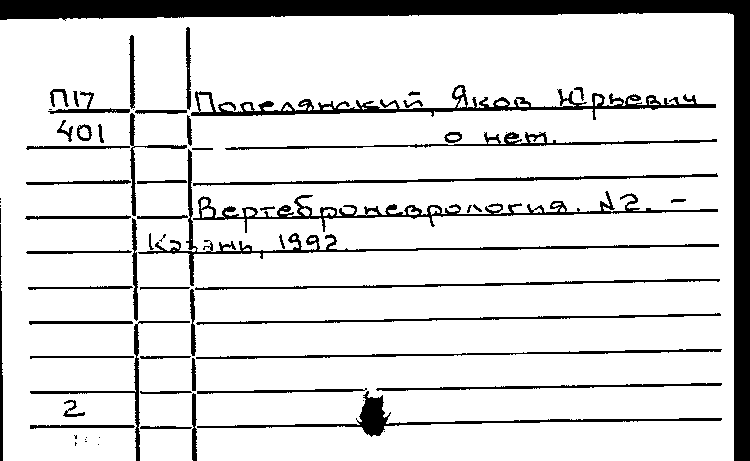 П17 Попелянский, Яков Юрьевич
401 о нем.
Вертеброневрология. N2. –
Казань, 1992.
2